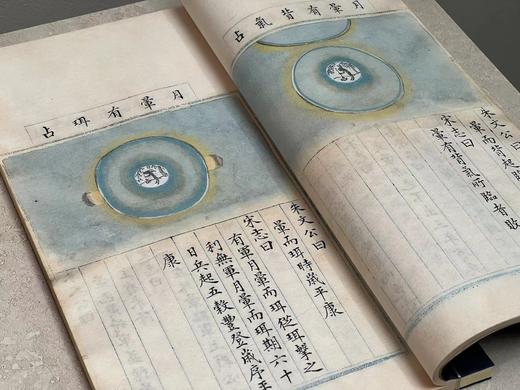 月暈有背氣占
朱文公曰
暈而背起
宋志曰
暈有背氣所臨者敗
月暈有珥占
朱文公曰
暈而珥時歲平康
宋志曰
有軍月暈而珥從珥擊之
利無軍月暈而珥期六十
日兵起五穀豐登歲序
康